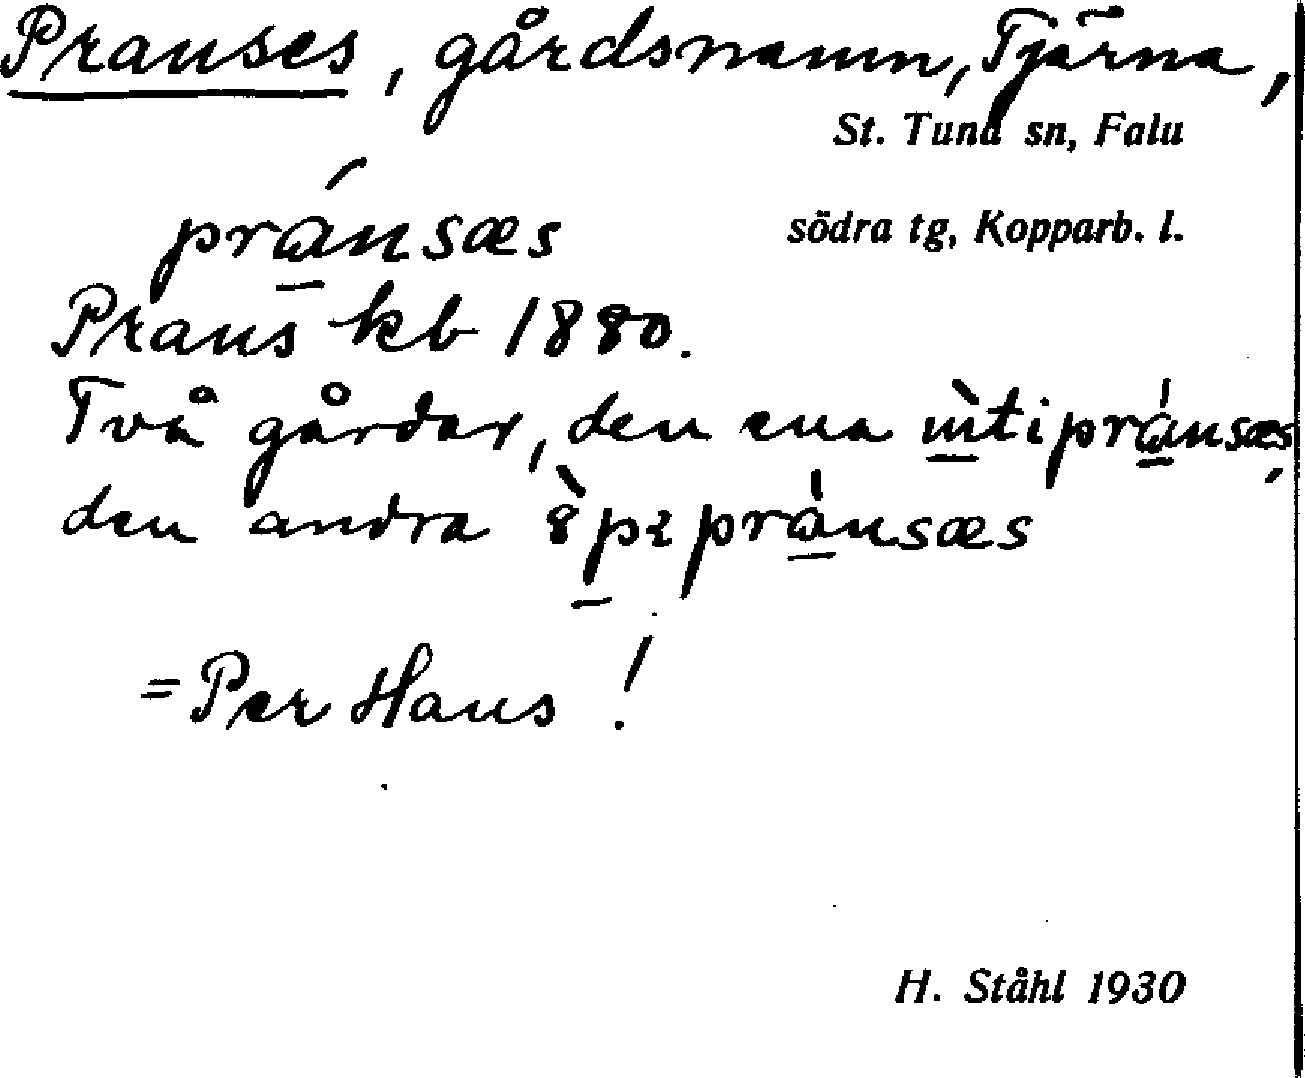 Pranses, gårdsnamn, Tjärna,
St. Tuna sn, Falu
pránsæs
södra tg, Kopparb. l.
Prans kb 1880.
Två gårdar, den ena
den andra
= Per Hans!
H. Ståhl 1930